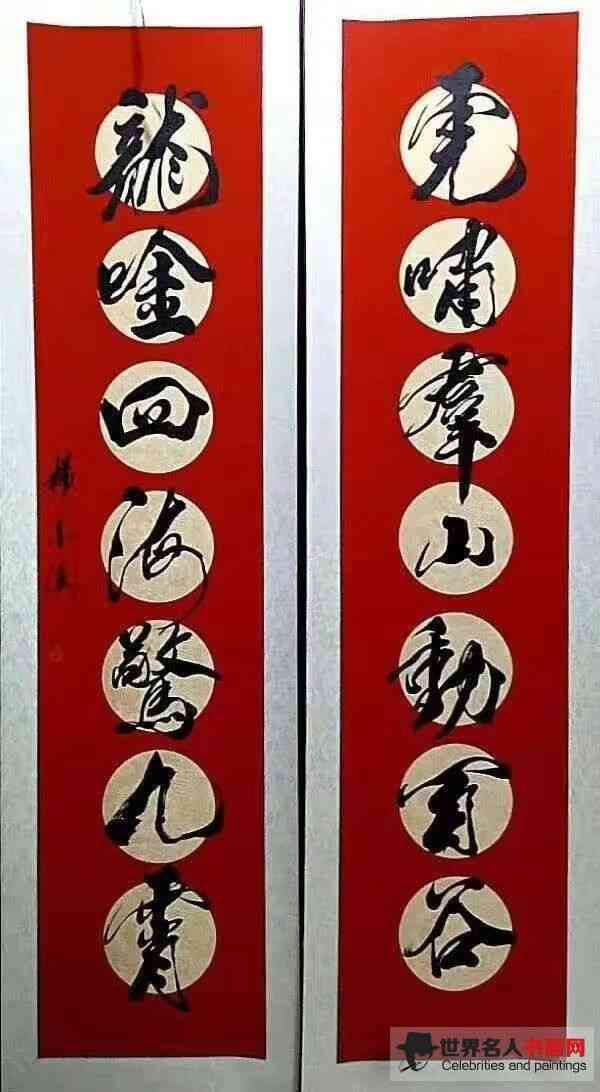 虎嘯羣山動百谷
龍唫四海驚九霄
世界名人书画网
Celebrities and paintings